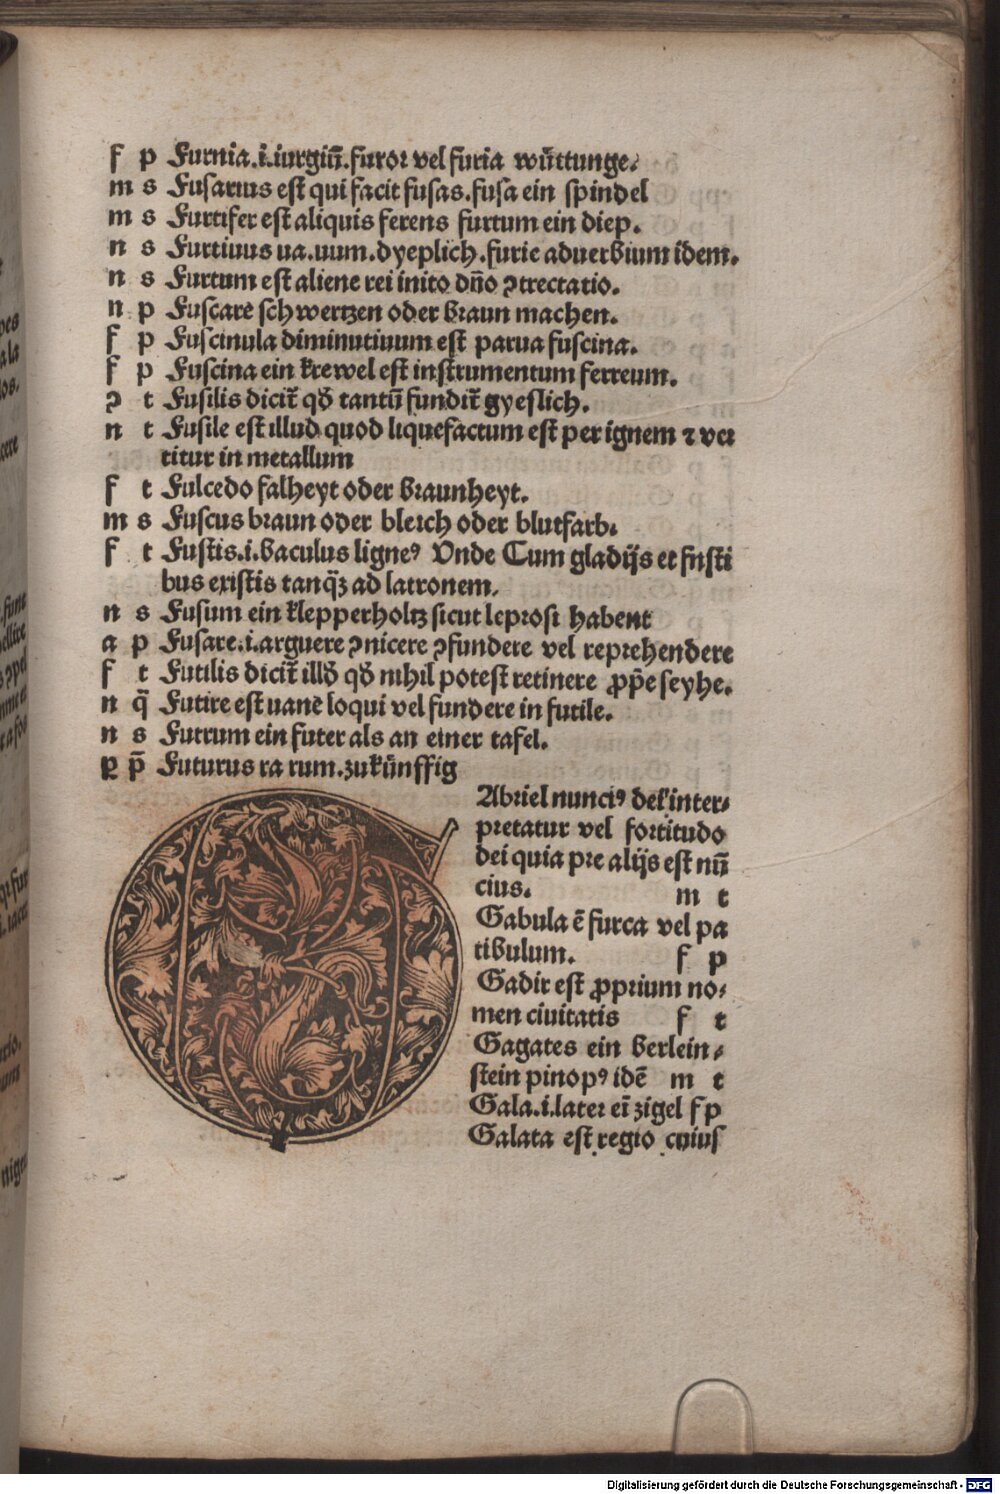 f p Furnia.i.iurgiū.furor vel furia wüttunge.
m s Fusarius est qui facit fusas.fusa ein spindel
m s Furtifer est aliquis ferens furtum ein diep.
n s Furtiuus ua.uum.dyeplich.furie aduerbium idem.
n s Furtum est aliene rei inito dño ꝯtrectatio.
n p Fuscare schwertzen oder braun machen.
f p Fuscinula diminutiuum est parua fuscina.
f p Fuscina ein krewel est instrumentum ferreum.
ꝯ t Fusilis dicit̄ qð tantū fundit̄ gyeslich.
n t Fusile est illud quod liquefactum est per ignem ⁊ ver
titur in metallum
f t Fulcedo falheyt oder braunheyt.
m s Fuscus braun oder bleich oder blutfarb.
f t Fustis.i.baculus ligneꝰ Vnde Cum gladijs et fusti
bus existis tanq̄ꝫ ad latronem.
n s Fusum ein klepperholtz sicut leprosi habent
a p Fusare.i.arguere ꝯnicere ꝯfundere vel reprehendere
f t Futilis dicit̄ illð qð nihil potest retinere ꝓp̄e seyhe.
n q̄ Futire est uane loqui vel fundere in futile.
n s Futrum ein futer als an einer tafel.
ꝑ p̄ Futurus ra rum.zukünffig
GAbriel nunciꝰ dei.inter⸗
pretatur vel fortitudo
dei quia pre alijs est nū
cius. m t
Gabula ē furca vel pa
tibulum. f p
Gadir est ꝓprium no⸗
men ciuitatis f t
Gagates ein berlein⸗
stein pinopꝰ idē m t
Gala.i.later eī zigel f p
Galata est regio cuius
Digitalisierung gefördert durch die Deutsche Forschungsgemeinschaft - DFG